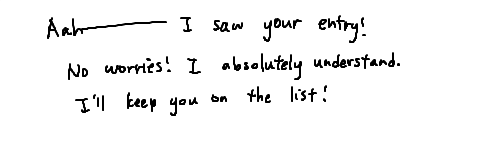 Aah—— I saw your entry!
No worries! I absolutely understand.
I'll keep you on the list!